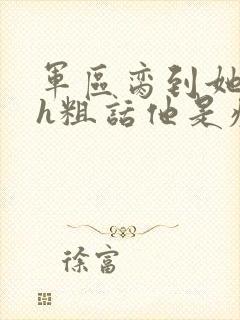 軍區蛮到她
h粗話他是
徐富